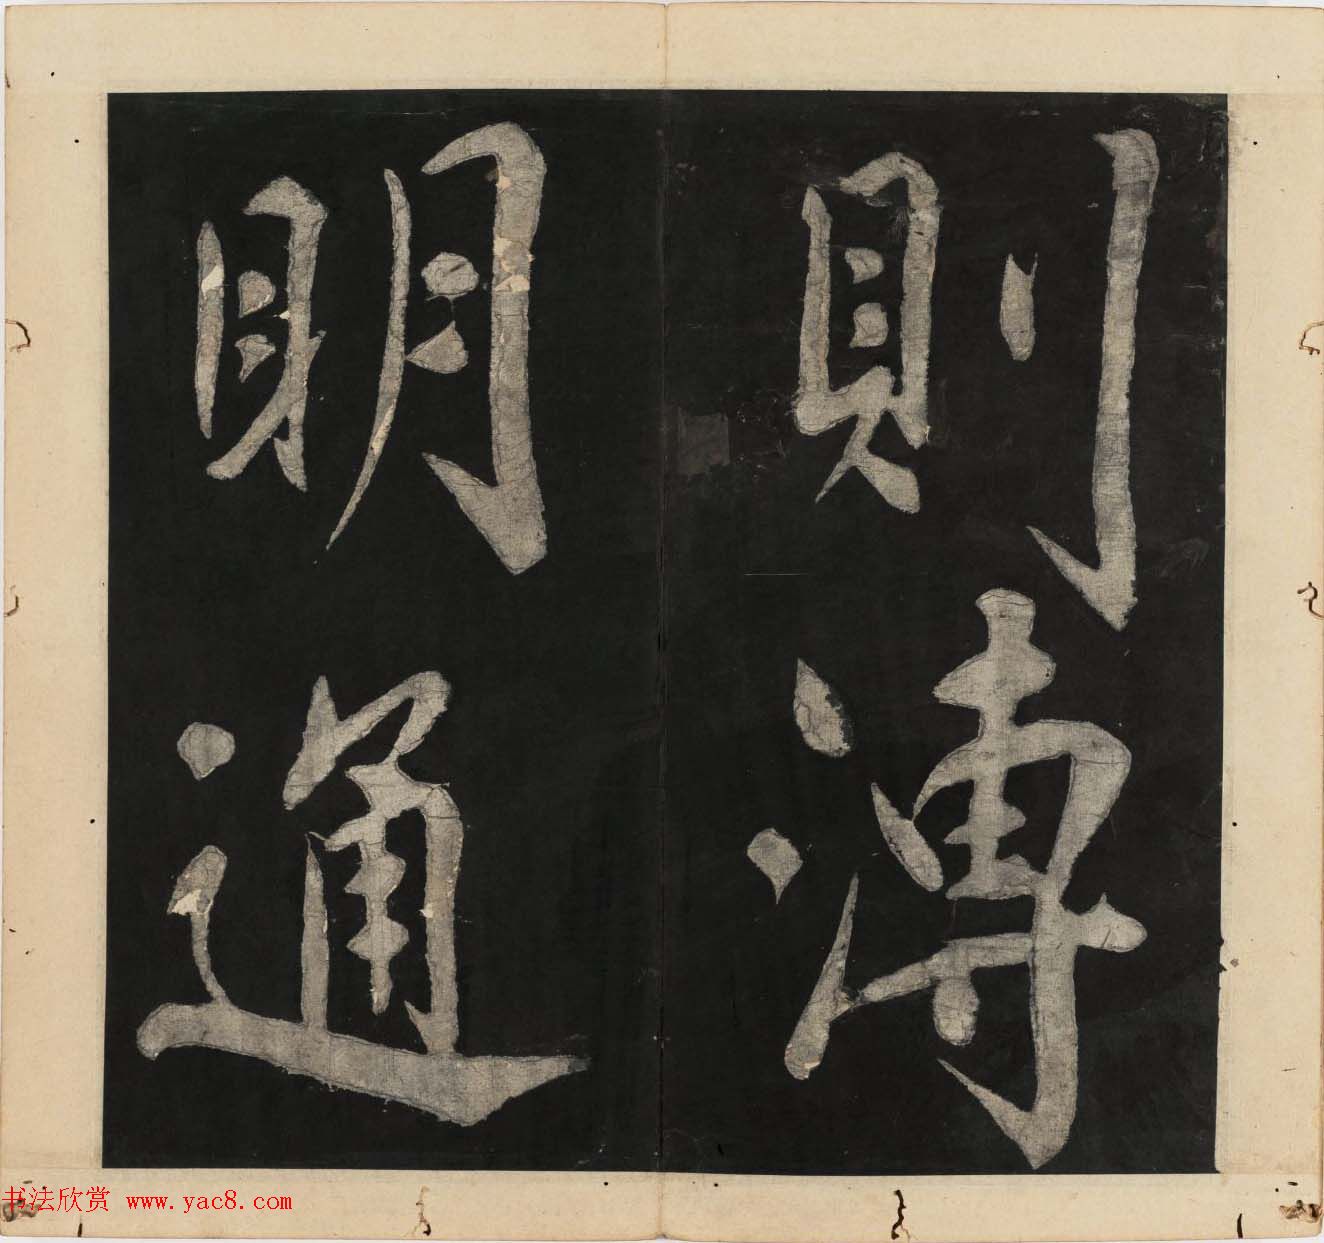 則溥
明通
书法欣赏 www.yac8.com